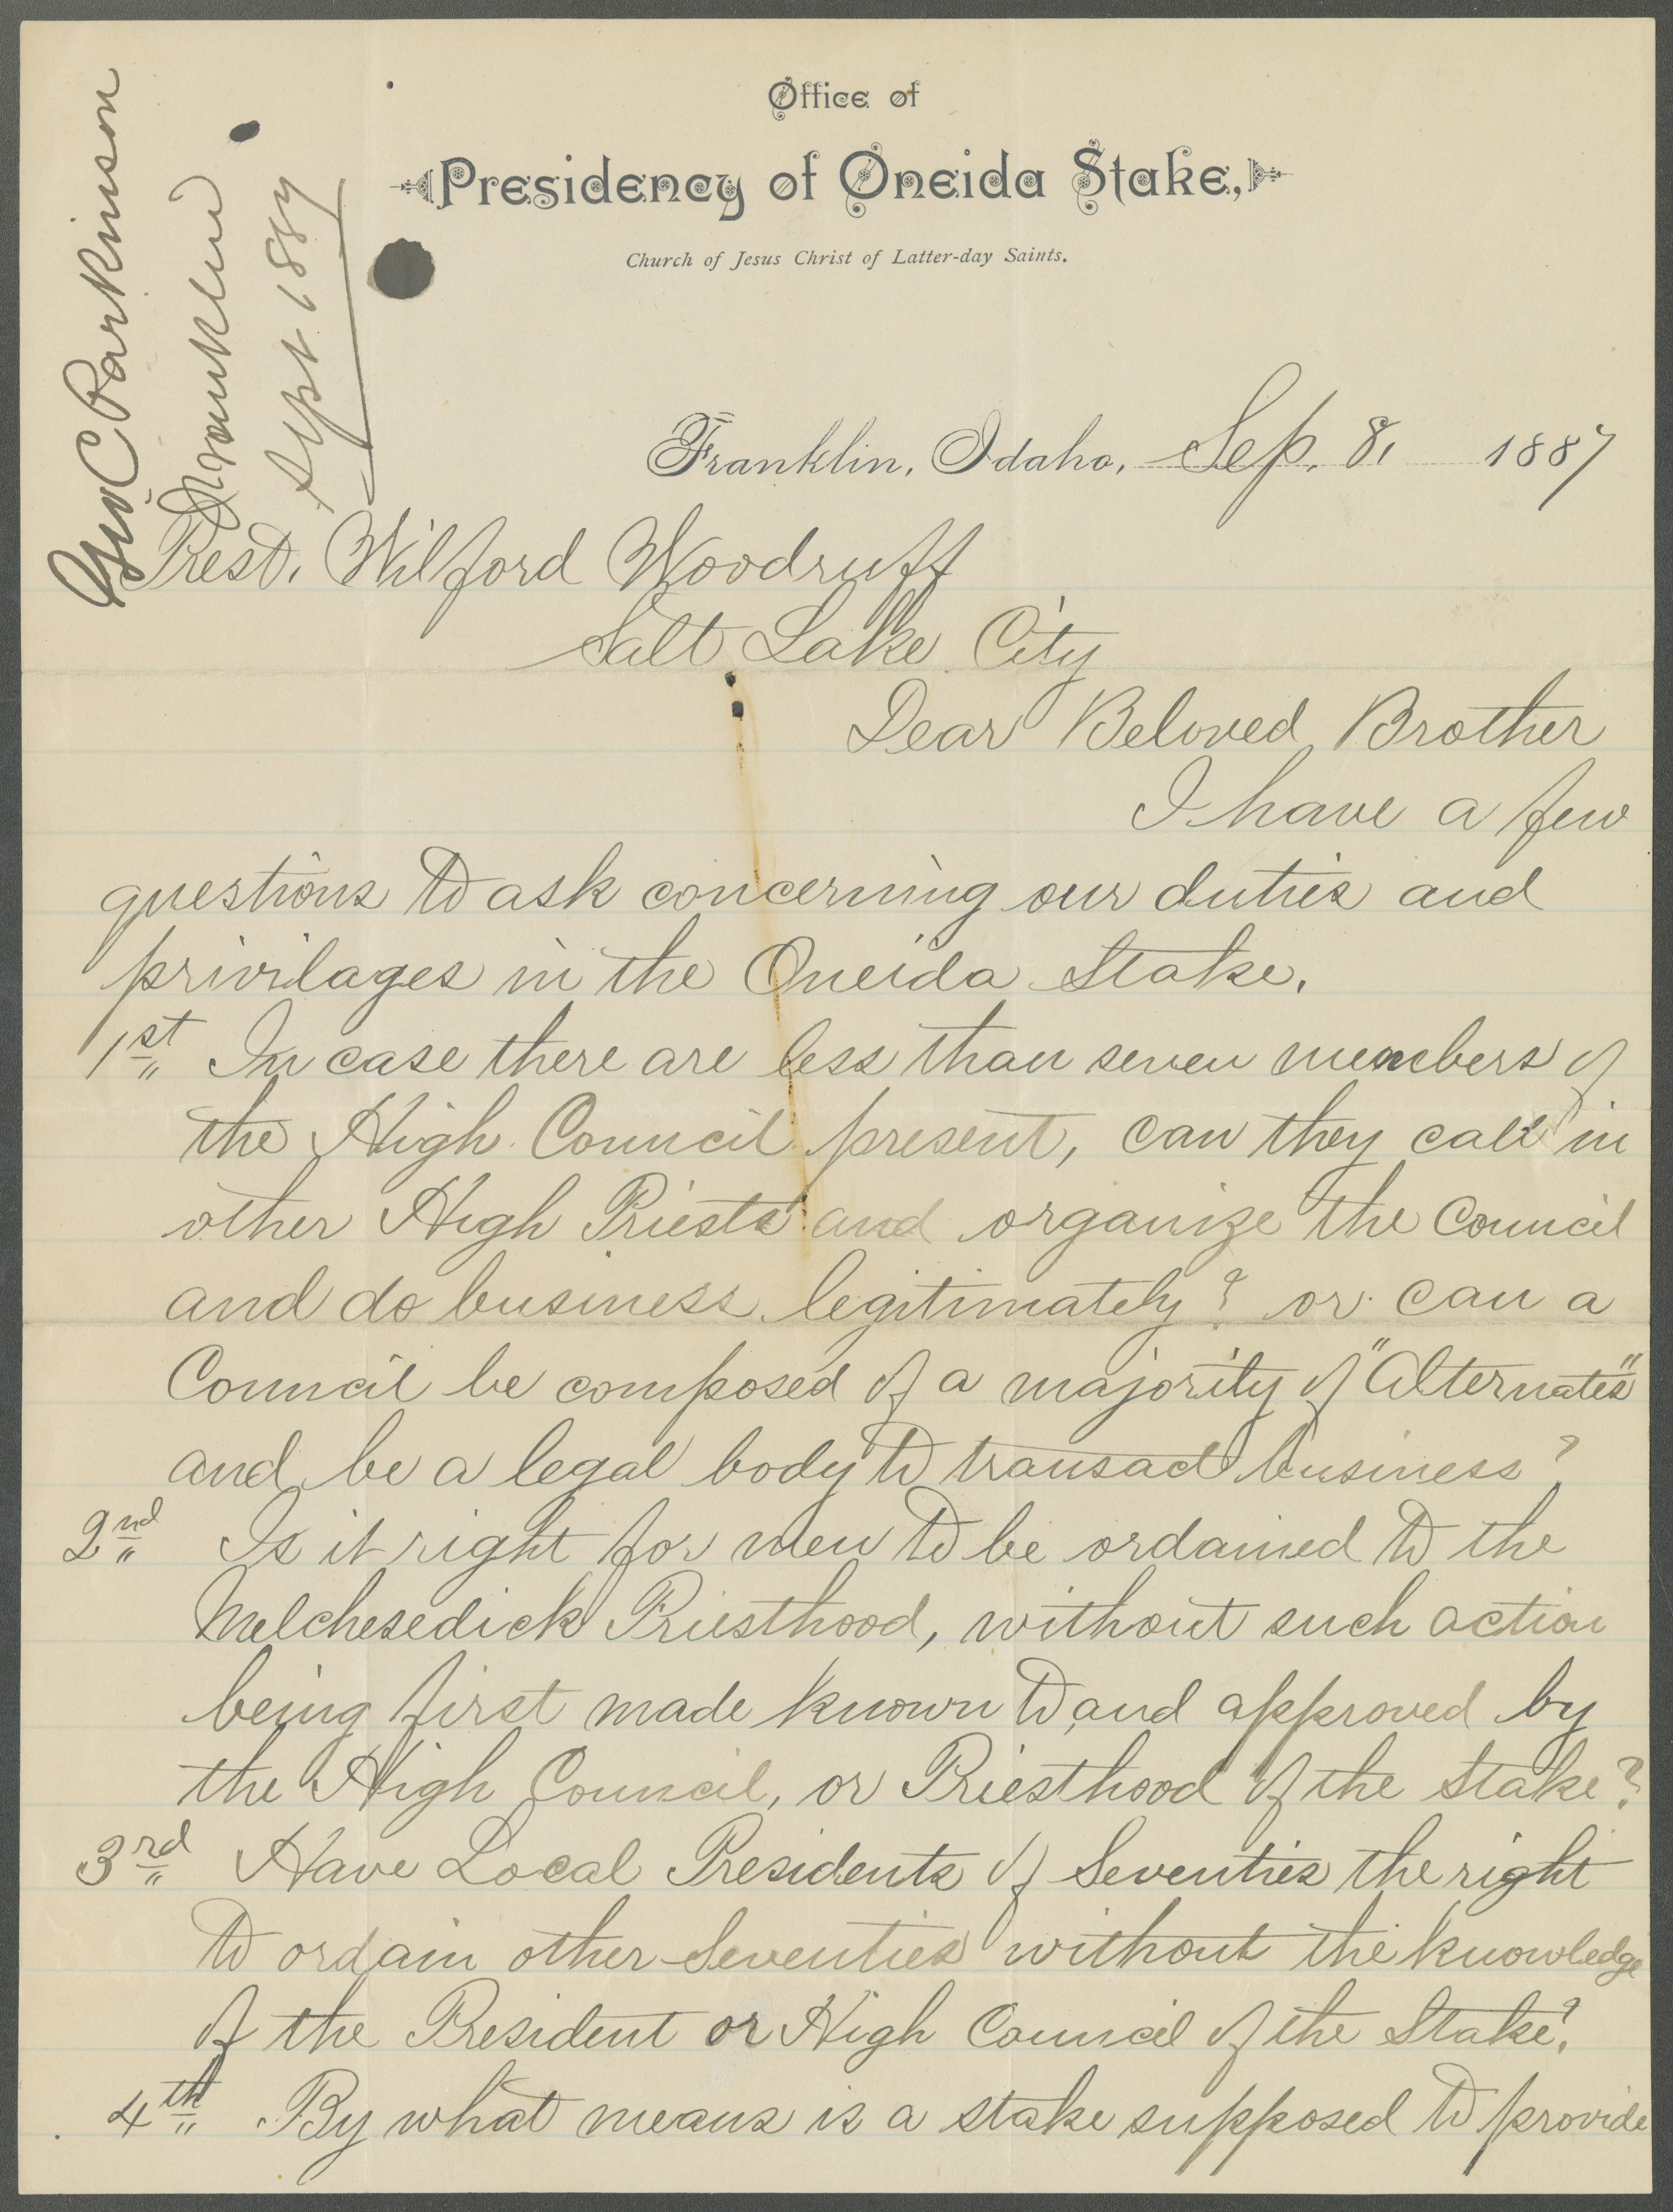 Geo C Parkinson
Franklin
Sept. 1887
Office of
Presidency of Oneida Stake,
Church of Jesus Christ of Latter-day Saints.
Franklin, Idaho, Sep. 8, 1887
Prest. Wilford Woodruff
Salt Lake City
Dear Beloved Brother
I have a few
questions to ask concerning our duties and
privilages in the Oneida Stake.
1st In case there are less than seven members of
the High Council present, can they call in
other High Priests and organize the Council
and do business legitimately? or can a
Council be composed of a majority of "Alternates"
and be a legal body to transact business?
2nd Is it right for men to be ordained to the
Melchesedick Priesthood, without such action
being first made known to and approved by
the High Council, or Priesthood of the Stake?
3rd Have Local Presidents of Seventies the right
to ordain other Seventies without the knowledge
of the President or High Council of the Stake?
4th By what means is a stake supposed to provide